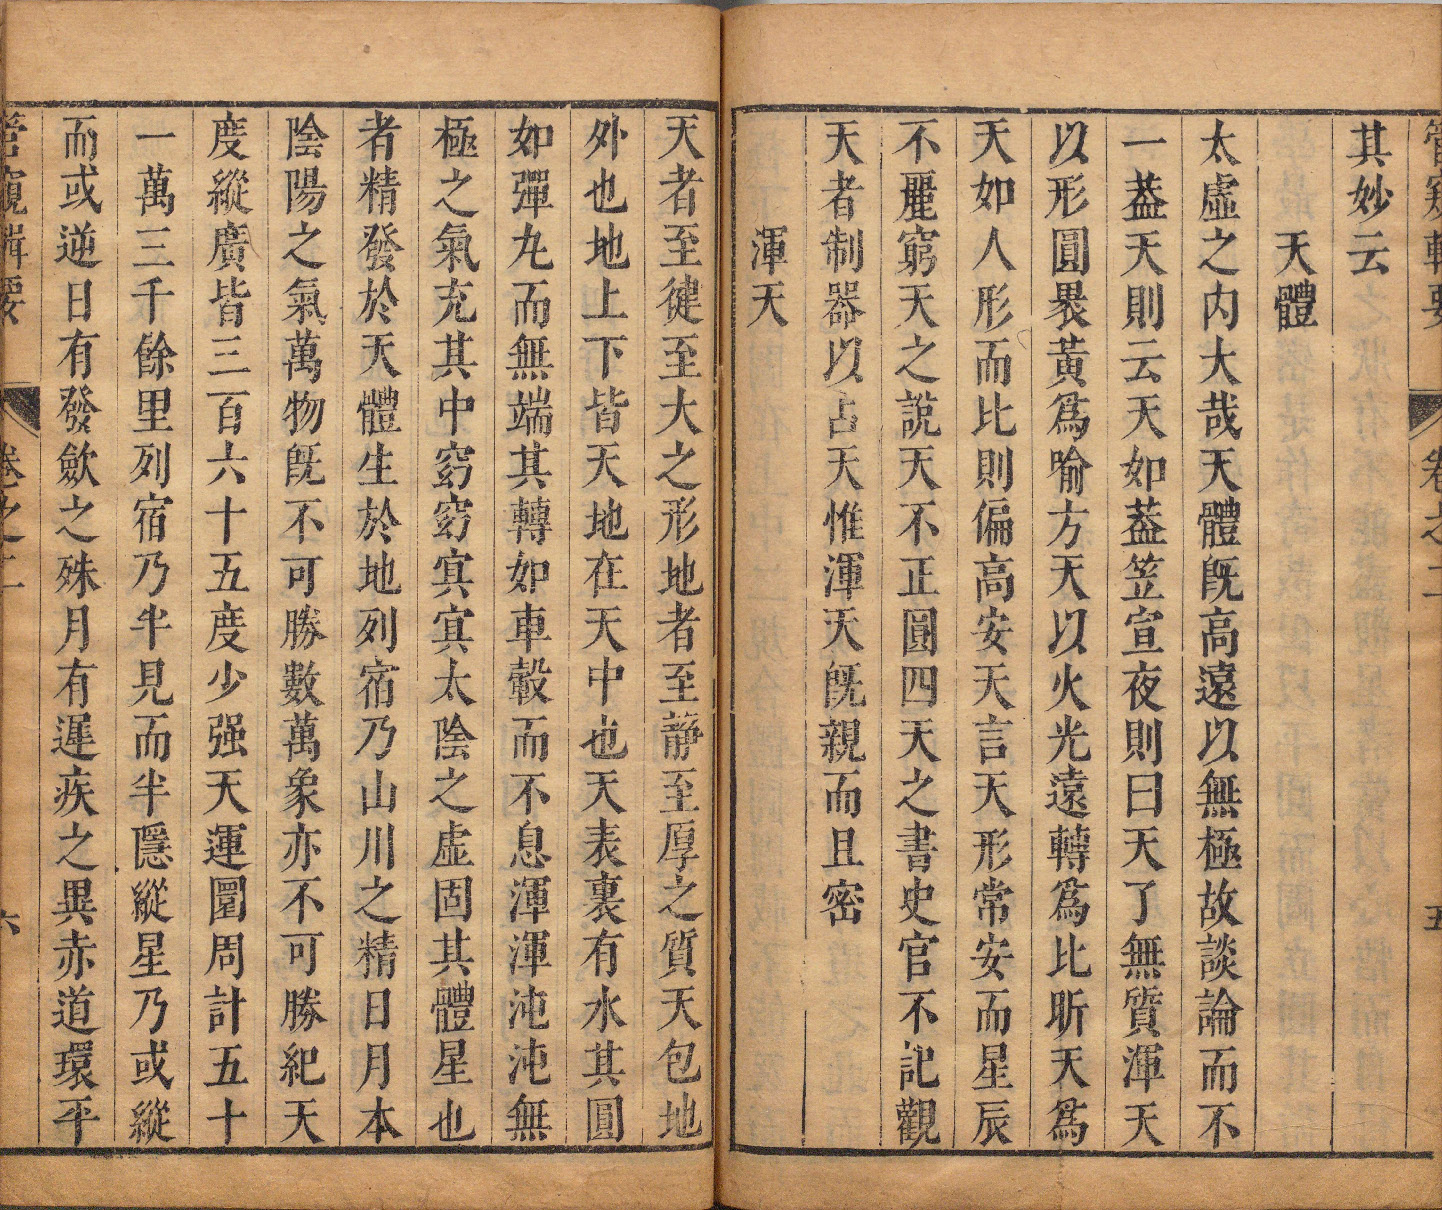 管窺輯要 卷之二 五
其妙云
天體
太虛之內大哉天體旣高遠以無極故談論而不
一蓋天則云天如蓋笠宣夜則曰天了無質渾天
以形圓畏黃爲喻方天以火光遠轉爲比昕天爲
天如人形而比則偏高安天言天形常安而星辰
不麗窮天之說天不正圓四天之書史官不記觀
天者制器以占天惟渾天旣親而且密
渾天
天者至徤至大之形地者至静至厚之質天包地
外也地上下皆天地在天中也天表裏有水其圓
如彈丸而無端其轉如車轂而不息渾渾沌沌無
極之氣充其中窈窈㝠㝠太陰之虛固其體星也
者精發於天體生於地列宿乃山川之精日月本
陰陽之氣萬物旣不可勝數萬象亦不可勝紀天
度縱廣皆三百六十五度少强天運圍周計五十
一萬三千餘里列宿乃半見而半隱縱星乃或縱
而或逆日有發歛之殊月有遲疾之異赤道環平
管窺輯要 卷之二 六